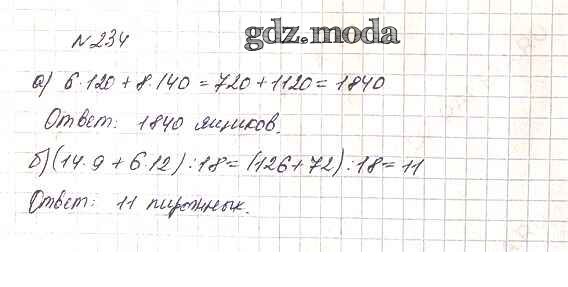 №234
gdz.moda
а) 6·120 + 8·140 = 720 + 1120 = 1840
Ответ: 1840 ящиков.
б) (14·9 + 6·12) : 18 = (126 + 72) : 18 = 11
Ответ: 11 пирожных.